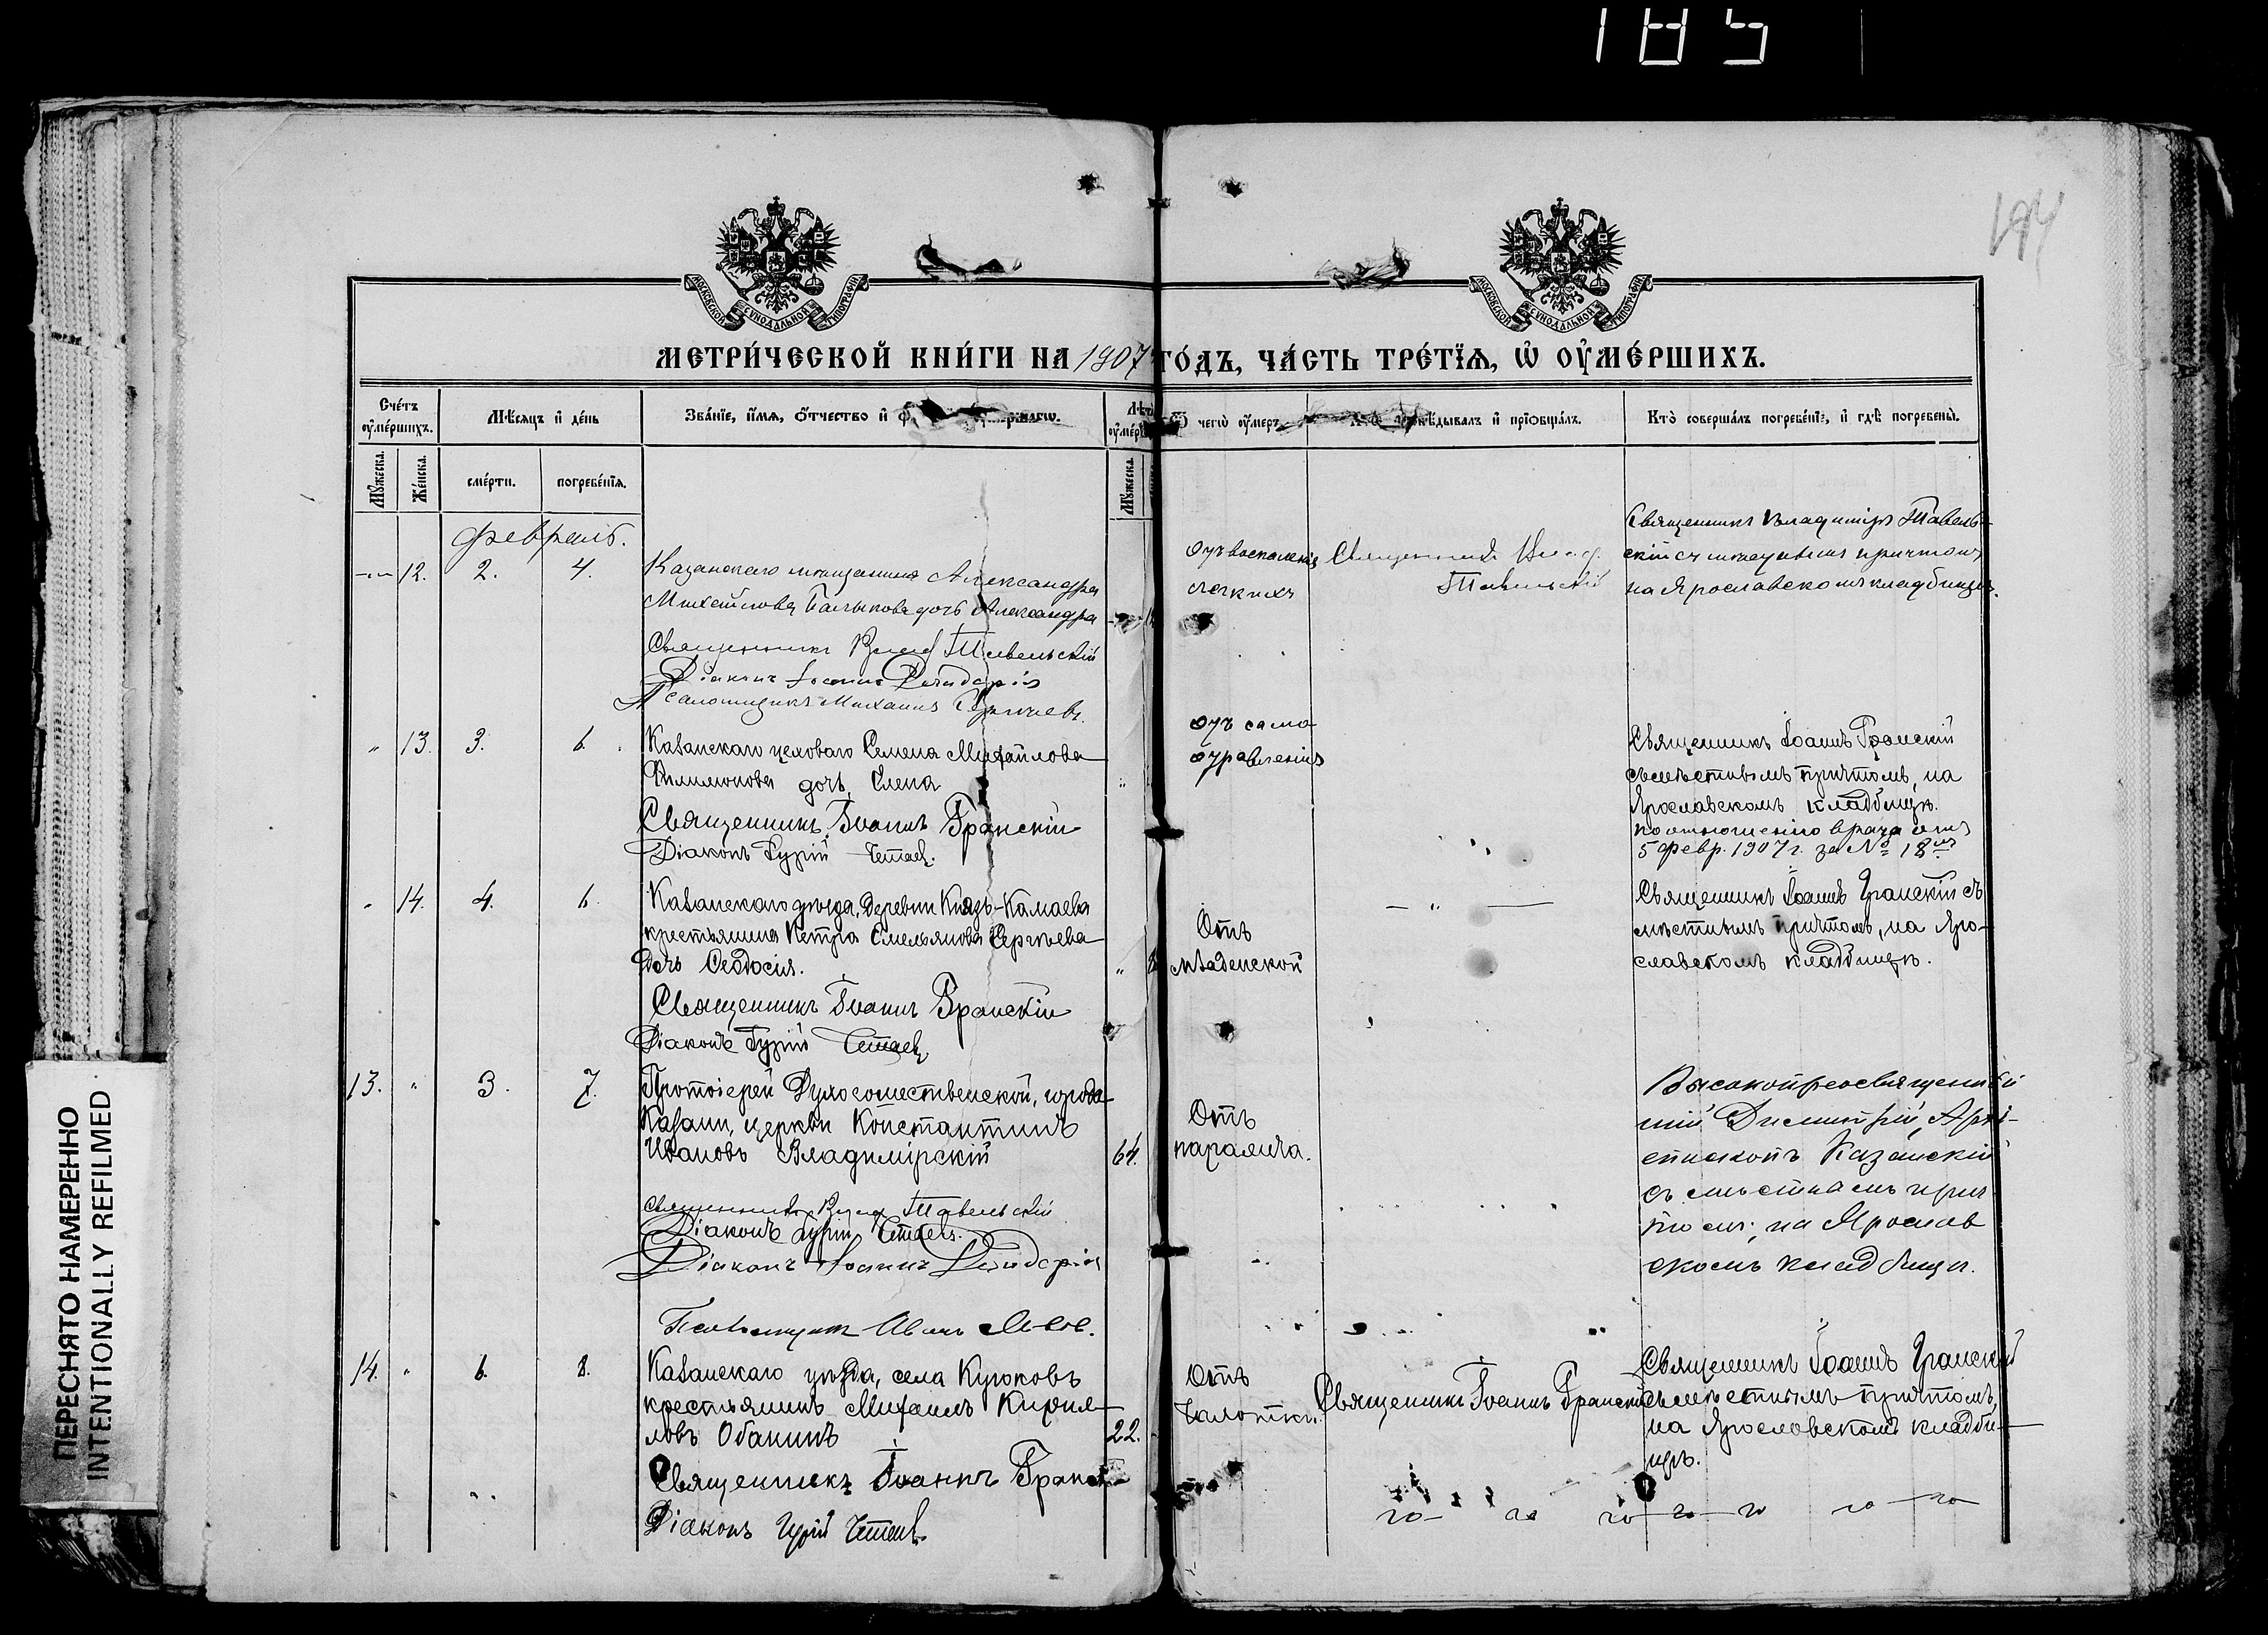 185
194
МОСКОВСКОЙ СѴНОДАЛЬНОЙ ТИПОГРАФІИ
МОСКОВСКОЙ СѴНОДАЛЬНОЙ ТИПОГРАФІИ
МЕТРИ́ЧЕСКОЙ КНИ́ГИ НА 1907 ГО́ДЪ, ЧА́СТЬ ТРЕ́ТЇѦ, Ѡ҆ ОУ҆МЕ́РШИХЪ.
Сче́тъ оу҆ме́ршихъ.
Мѣ́сѧцъ и҆ де́нь
Зва́нїе, и҆́мѧ, ѻ҆́тчество и҆
Ѿ чегѡ̀ оу҆́меръ
и҆ прїѻбща́лъ.
Кто̀ соверша́лъ погребе́нїе, и҆ гдѣ̀ погребены̀.
Мꙋ́жеска.
Же́нска.
сме́рти.
погребе́нїѧ.
Мꙋ́жеска.
Февраль.
12. 2. 4.
Казанскаго мѣщанина Александра
Михайлова дочь Александра
Священникъ Влад Тавельскій
Діаконъ Іоаннъ
Псаломщикъ Михаилъ
Отъ воспаленія
легкихъ
Священникъ Влад.
Тавельскій
Священникъ Владиміръ Тавель-
скій съ мѣстнымъ причтомъ
на Ярославскомъ кладбищѣ.
" 13. 3. 6.
Казанскаго цеховаго Семена Михайлова
Филимонова дочь, Елена
Священникъ Іоаннъ Гранскій
Діаконъ Гурій
отъ само
отравленія
Священникъ Іоаннъ Гранскій
съ мѣстнымъ причтомъ, на
Ярославскомъ кладбищѣ.
по отношенію врача отъ
5 февр. 1907 г. за № 18
" 14. 4. 6.
Казанскаго уѣзда, деревни Князь-Камаева
крестьянина Петра Емельянова Сергѣева
дочь Ѳеодосія.
Священникъ Іоаннъ Гранскій
Діаконъ Гурій
Отъ
младенской
Священникъ Іоаннъ Гранскій съ
мѣстнымъ причтомъ, на Яро-
славскомъ кладбищѣ.
13. " 3. 7.
Протоіерей Духосошественской, города
Казани, церкви Константинъ
Ивановъ Владимірскій
64.
Священникъ Влад Тавельскій
Діаконъ Гурій
Діаконъ Іоаннъ
Псаломщикъ Иванъ
Отъ
паралича.
Высокопреосвященнѣй
шій Димитрій, Архі-
епископъ Казанскій
съ мѣстнымъ прич
томъ, на Ярослав
скомъ кладбищѣ.
14. " 6. 8.
Казанскаго уѣзда, села Куюковъ
крестьянинъ Михаилъ Кирил-
ловъ Обакинъ
22.
Священникъ Іоаннъ Гранскій
Діаконъ Гурій
Отъ
чахотки.
Священникъ Іоаннъ Гранскій
Священникъ Іоаннъ Гранскій
съ мѣстнымъ причтомъ,
на Ярославскомъ кладби-
щѣ.
ПЕРЕСНЯТО НАМЕРЕННО
INTENTIONALLY REFILMED